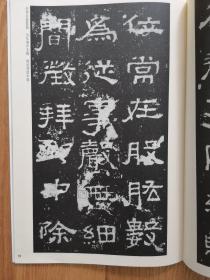 位常在股肱數
為從事聲無細
聞徵拜郎中除